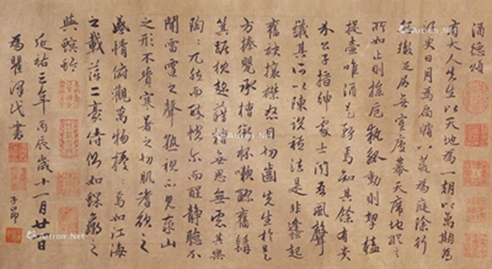 酒德頌
有大人先生以天地為一朝以萬期為
須臾日月為扃牖八荒為庭除行
無轍跡居無室廬幕天席地縱意
所如止則操卮執觚動則挈榼
提壺唯酒是務焉知其餘有貴
介公子搢紳處士聞吾風聲
議其所以陳說禮法是非鋒起
奮袂攘襟怒目切齒先生於是
方捧罌承槽銜杯漱醪奮髯
箕踞枕麴藉糟無思無慮其樂
陶陶兀然而醉恍爾而醒靜聽不
聞雷霆之聲熟視不見泰山
之形不覺寒暑之切肌嗜欲之
感情俯觀萬物擾擾焉如江海
之載萍二豪侍側如蜾蠃之
與螟蛉
延祐三年丙辰歲十一月廿日
為瞿澤民書
子昂